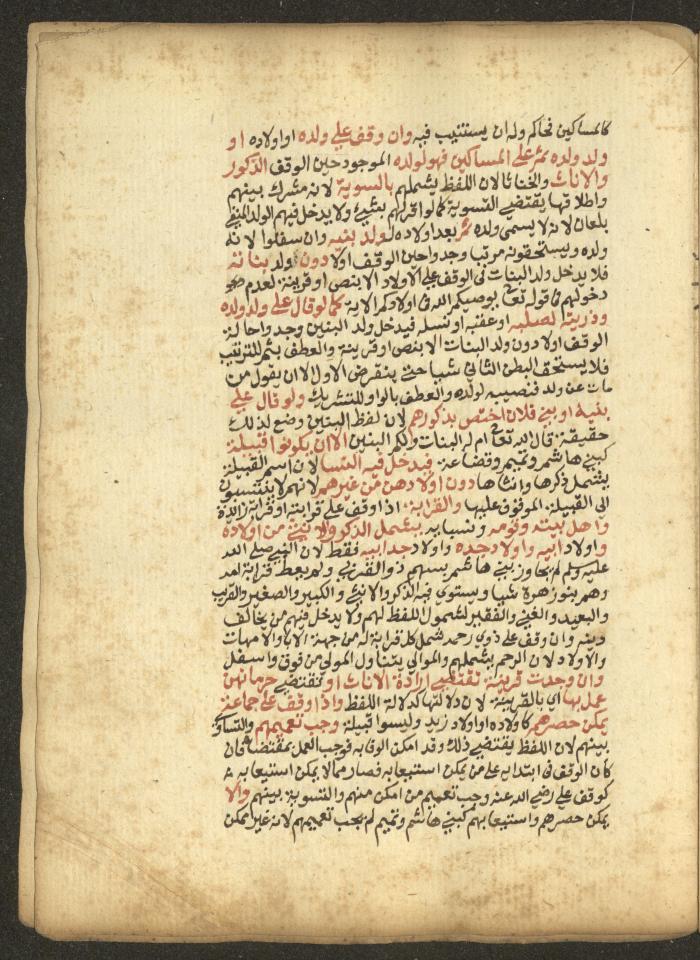 كالمساكين فحاكم وله ان يستنيب فيه وان وقف على ولده او اولاده او
ولد ولده ثم على المساكين فهو لولده الموجود حين الوقف الذكور
والاناث والخناثا لان اللفظ يشملهم بالسوية لانه شرك بينهم
واطلاقها يقتضي التسوية كما لو اقر لهم بشيء ولا يدخل فيهم الولد المنفي
بلعان لانه لا يسمى ولده ثم بعد اولاده لولد بنيه وان سفلوا لانه
ولده ويستحقونه مرتبا وجدوا حين الوقف اولا دون ولد بناته
فلا يدخل ولد البنات في الوقف على الاولاد الا بنص او قرينة لعدم
دخولهم في قوله تعالى يوصيكم الله في اولادكم الاية كما لو قال على ولد ولده
وذريته لصلبه او عقبه او نسله فيدخل ولد البنين وجدوا حالة
الوقف اولا دون ولد البنات الا بنص او قرينة والعطف بثم للترتيب
فلا يستحق البطن الثاني شيا حتى ينقرض الاول الا ان يقول من
مات عن ولد فنصيبه لولده والعطف بالواو للتشريك ولو قال على
بنيه او بني فلان اختص بذكورهم لان لفظ البنين وضع لذلك
حقيقة قال الله تعالى ام له البنات ولكم البنين الا ان يكونوا قبيلة
كبني هاشم وتميم وقضاعة فيدخل فيه النسا لان اسم القبيلة
يشمل ذكرها وانثاها دون اولادهن من غيرهم لانهم لا ينتسبون
الى القبيلة الموقوف عليها والقرابة اذا وقف على قرابته او قرابة زيد
واهل بيته وقومه ونسبايه يشمل الذكر والانثى من اولاده
واولاد ابيه واولاد جده واولاد جد ابيه فقط لان النبي صلى الله
عليه وسلم لم يجاوز بني هاشم بسهم ذوي القربى ولم يعط قرابة امه
وهم بنو زهرة شيا ويستوي فيه الذكر والانثى والكبير والصغير والقريب
والبعيد والغني والفقير لشمول اللفظ لهم ولا يدخل فيهم من يخالف
دينه وان وقف على ذوي رحمه شمل كل قرابة له من جهة الابا والامهات
والاولاد لان الرحم يشملهم والموالي يتناول المولى من فوق واسفل
وان وجدت قرينة تقتضي ارادة الاناث او تقتضي حرمانهن
عمل بها اي بالقرينة لان دلالتها كدلالة اللفظ واذا وقف على جماعة
يمكن حصرهم كاولاده او اولاد زيد وليسوا قبيلة وجب تعميمهم والتساوي
بينهم لان اللفظ يقتضي ذلك وقد امكن الوفا به فوجب العمل بمقتضاه فان
كان الوقف في ابتدايه على من يمكن استيعابه فصار مما لا يمكن استيعابه
كوقف علي رضي الله عنه وجب تعميم من امكن منهم والتسوية بينهم والا
يمكن حصرهم واستيعابهم كبني هاشم وتميم لم يجب تعميمهم لانه غير ممكن